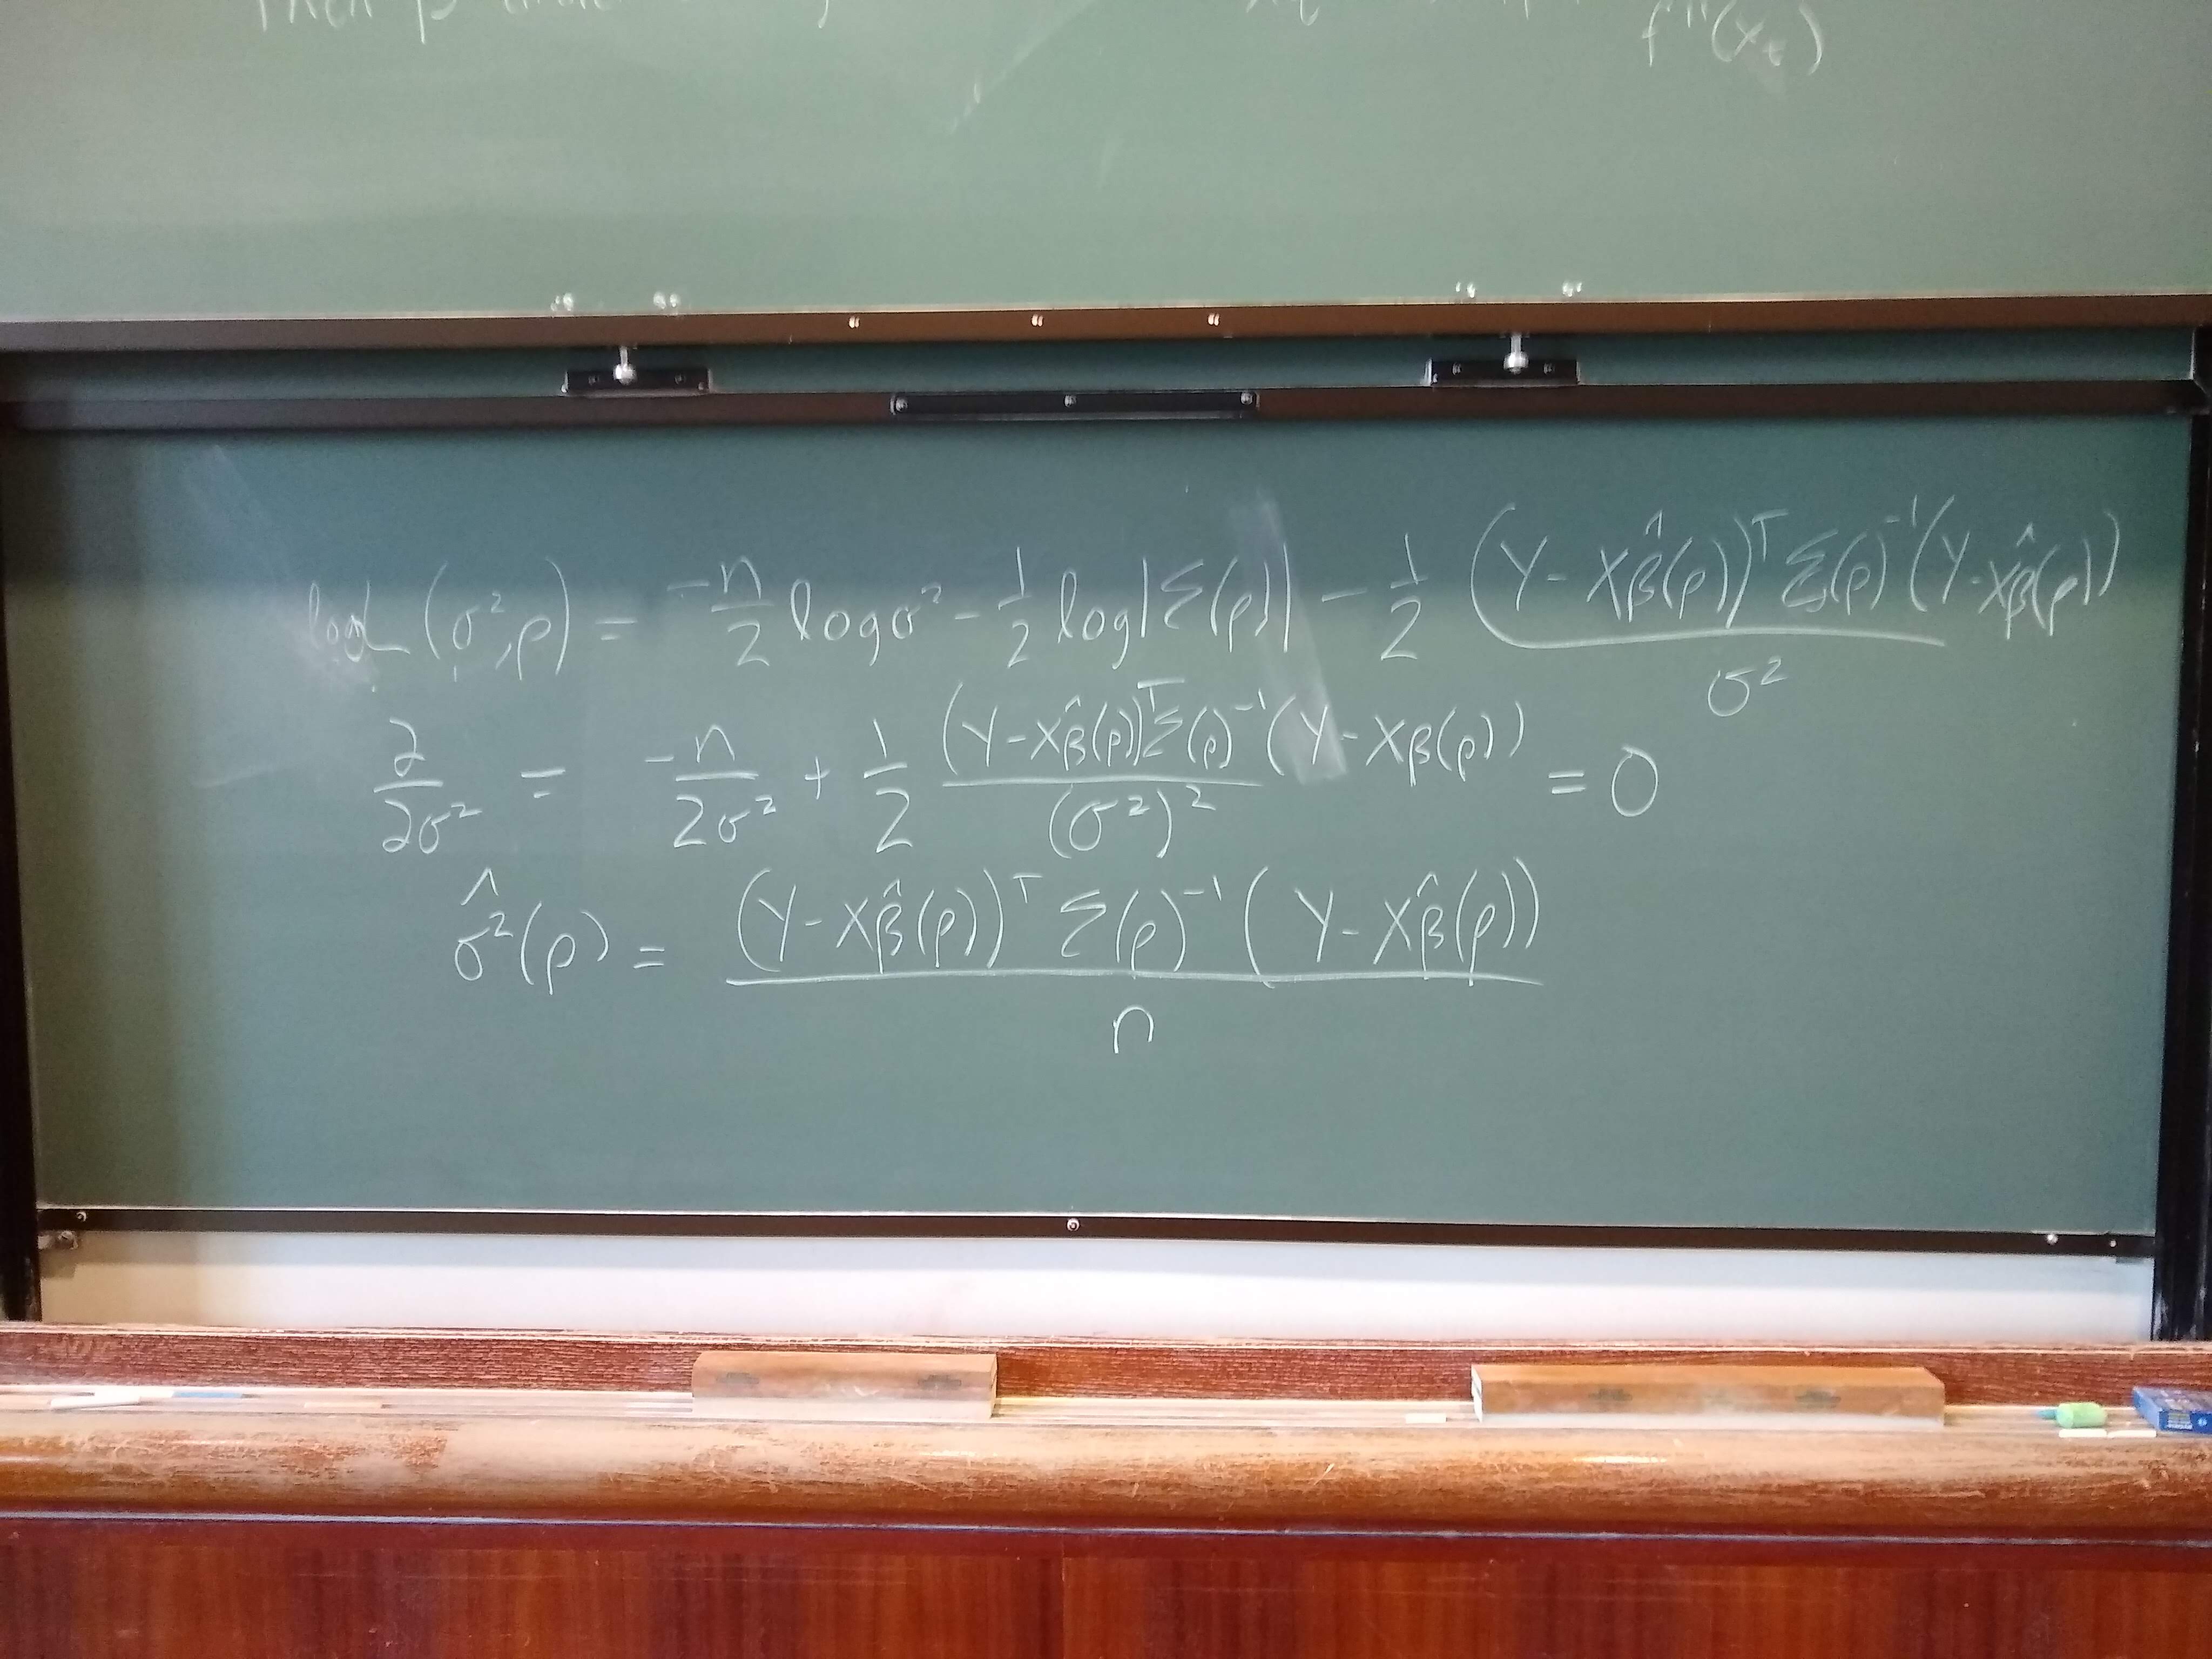 f''(x_t)
logL(σ², ρ) = -n/2 logσ² - 1/2 log|Σ(ρ)| - 1/2 (Y - Xβ̂(ρ))ᵀ Σ(ρ)⁻¹ (Y - Xβ̂(ρ)) / σ²
∂/∂σ² = -n/2σ² + 1/2 (Y - Xβ̂(ρ))ᵀ Σ(ρ)⁻¹ (Y - Xβ(ρ)) / (σ²)² = 0
σ̂²(ρ) = (Y - Xβ̂(ρ))ᵀ Σ(ρ)⁻¹ (Y - Xβ̂(ρ)) / n